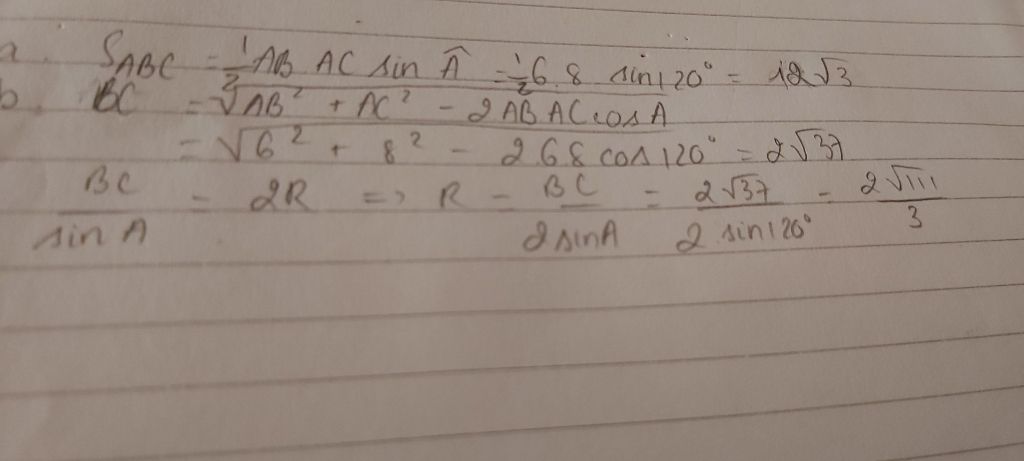 a. S_ABC = 1/2 AB AC sin Â = 1/2 6.8 sin120° = 12√3
b. BC = √AB² + AC² - 2AB AC cosA
= √6² + 8² - 2 6 8 cos120° = 2√37
BC/sin A = 2R => R = BC/2sinA = 2√37/2 sin120° = 2√111/3